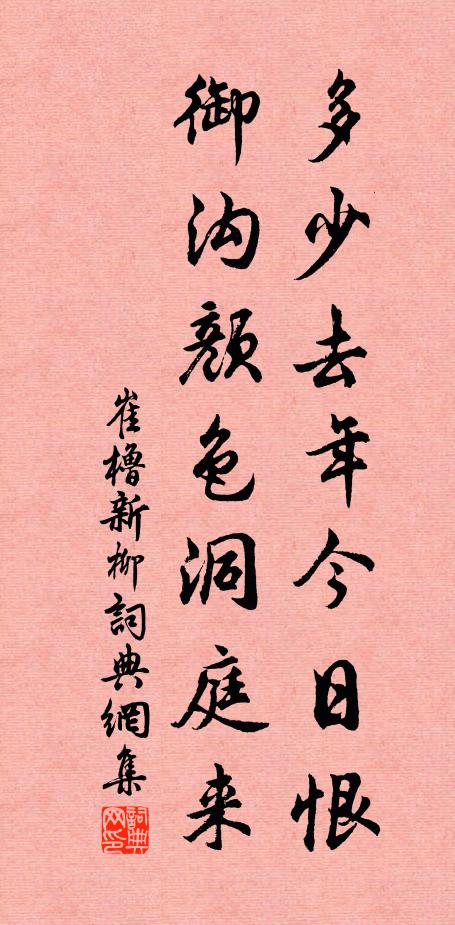 多少去年今日恨
御沟颜色洞庭来
崔櫓新柳詞典網集
詞典网印